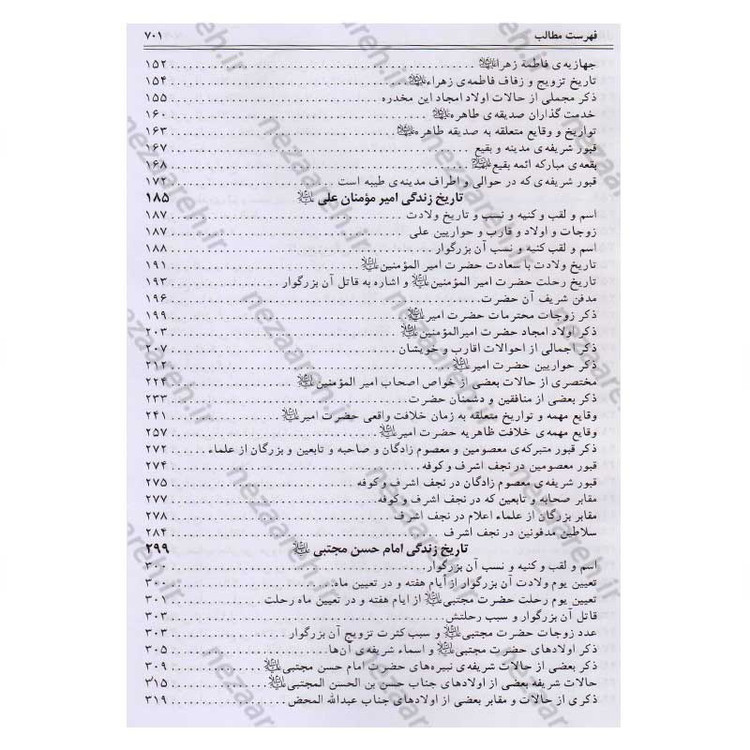 فهرست مطالب ۷۰۱
جهازیه‌ی فاطمه زهراء ۱۵۲
تاریخ تزویج و زفاف فاطمه‌ی زهراء ۱۵۴
ذکر مجملی از حالات اولاد امجاد این مخدره ۱۵۵
خدمت گذاران صدیقه‌ی طاهره ۱۶۰
تواریخ و وقایع متعلقه به صدیقه طاهره ۱۶۳
قبور شریفه‌ی مدینه و بقیع ۱۶۷
بقعه‌ی مبارکه ائمه بقیع ۱۶۸
قبور شریفه‌ی که در حوالی و اطراف مدینه‌ی طیبه است ۱۷۲
تاریخ زندگی امیر مؤمنان علی ۱۸۵
اسم و لقب و کنیه و نسب و تاریخ ولادت ۱۸۷
زوجات و اولاد و قارب و حواریین علی ۱۸۷
اسم و لقب کنیه و نسب آن بزرگوار ۱۸۸
تاریخ ولادت با سعادت حضرت امیر المؤمنین ۱۹۱
تاریخ رحلت حضرت امیر المؤمنین و اشاره به قاتل آن بزرگوار ۱۹۳
مدفن شریف آن حضرت ۱۹۶
ذکر زوجات محترمات حضرت امیر ۱۹۹
ذکر اولاد امجاد حضرت امیرالمؤمنین ۲۰۳
ذکر اجمالی از احوالات اقارب و خویشان ۲۰۷
ذکر حواریین حضرت امیر ۲۱۲
مختصری از حالات بعضی از خواص اصحاب امیر المؤمنین ۲۲۴
ذکر بعضی از منافقین و دشمنان حضرت ۲۳۳
وقایع مهمه و تواریخ متعلقه به زمان خلافت واقعی حضرت امیر ۲۴۱
وقایع مهمه‌ی خلافت ظاهریه حضرت امیر ۲۵۷
ذکر قبور متبرکه‌ی معصومین و معصوم زادگان و صاحبه و تابعین و بزرگان از علماء ۲۷۲
قبور معصومین در نجف اشرف و کوفه ۲۷۴
قبور شریفه‌ی معصوم زادگان در نجف اشرف و کوفه ۲۷۵
مقابر صحابه و تابعین که در نجف اشرف و کوفه ۲۷۷
مقابر بزرگان از علماء اعلام در نجف اشرف ۲۷۸
سلاطین مدفونین در نجف اشرف ۲۸۴
تاریخ زندگی امام حسن مجتبی ۲۹۹
اسم و لقب و کنیه و نسب آن بزرگوار ۳۰۰
تعیین یوم ولادت آن بزرگوار از أیام هفته و در تعیین ماه ۳۰۰
تعیین یوم رحلت حضرت مجتبی از ایام هفته و در تعیین ماه رحلت ۳۰۱
قاتل آن بزرگوار و سبب رحلتش ۳۰۳
عدد زوجات حضرت مجتبی و سبب کثرت تزویج آن بزرگوار ۳۰۳
ذکر اولادهای حضرت مجتبی و اسماء شریفه‌ی آن‌ها ۳۰۵
ذکر بعضی از حالات شریفه‌ی نبیره‌های حضرت امام حسن مجتبی ۳۰۹
حالات شریفه بعضی از اولادهای جناب حسن بن الحسن المجتبی ۳۱۵
ذکری از حالات و مقابر بعضی از اولادهای جناب عبدالله المحض ۳۱۹
nezaareh.ir